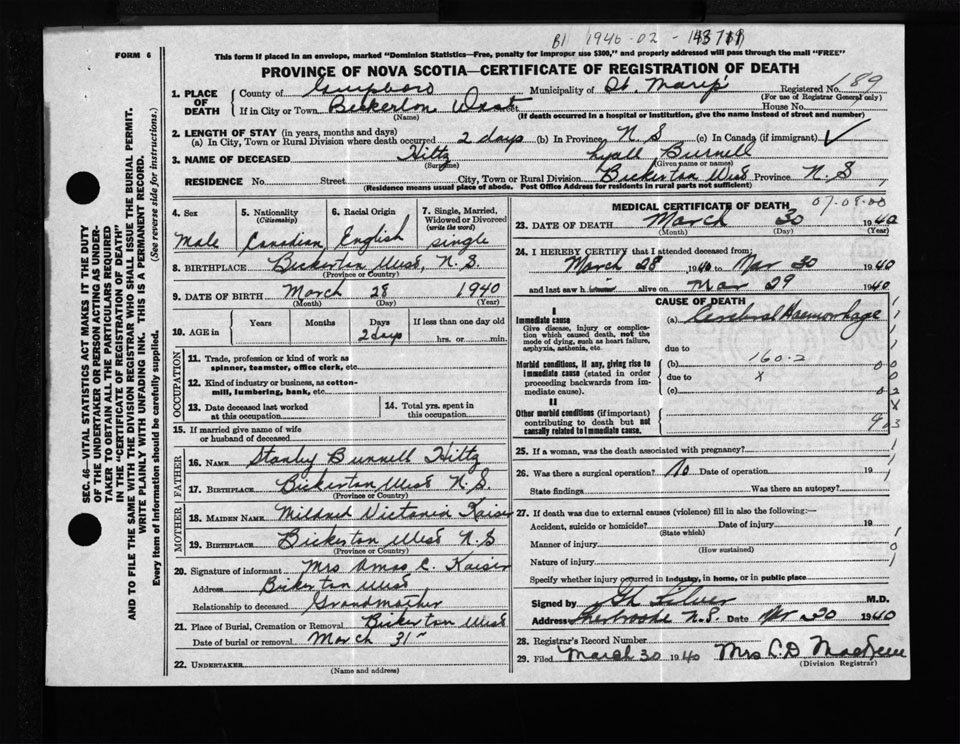 B1 1946-02-
FORM 6
This form if placed in an envelope, marked "Dominion Statistics—Free, penalty for improper use $300," and properly addressed will pass through the mail "FREE"
PROVINCE OF NOVA SCOTIA—CERTIFICATE OF REGISTRATION OF DEATH
189
1. PLACE OF DEATH County of Guysboro Municipality of St. Mary's Registered No.
(For use of Registrar General only)
If in City or Town Bickerton West Street House No.
(Name) (If death occurred in a hospital or institution, give the name instead of street and number)
2. LENGTH OF STAY (in years, months and days)
(a) In City, Town or Rural Division where death occurred 2 days (b) In Province N S (c) In Canada (if immigrant)
3. NAME OF DECEASED Hiltz Lyall Burnell
(Surname) (Given name or names)
RESIDENCE No. Street City, Town or Rural Division Bickerton West Province N. S
(Residence means usual place of abode. Post Office Address for residents in rural parts not sufficient)
4. Sex Male
5. Nationality (Citizenship) Canadian
6. Racial Origin English
7. Single, Married, Widowed or Divorced (write the word) single
8. BIRTHPLACE Bickerton West, N.S.
(Province or Country)
9. DATE OF BIRTH March 28 1940
(Month) (Day) (Year)
10. AGE in Years Months Days If less than one day old
2 days hrs. or min.
OCCUPATION
11. Trade, profession or kind of work as spinner, teamster, office clerk, etc.
12. Kind of industry or business, as cotton-mill, lumbering, bank, etc.
13. Date deceased last worked at this occupation
14. Total yrs. spent in this occupation
15. If married give name of wife or husband of deceased
FATHER
16. Name Stanley Burnell Hiltz
17. Birthplace Bickerton West N. S.
(Province or Country)
MOTHER
18. Maiden Name Mildred Victoria Kaiser
19. Birthplace Bickerton West N. S
(Province or Country)
20. Signature of informant Mrs Amos C. Kaiser
Address Bickerton West
Relationship to deceased Grandmother
21. Place of Burial, Cremation or Removal Bickerton West
Date of burial or removal March 31
22. UNDERTAKER
(Name and address)
MEDICAL CERTIFICATE OF DEATH 07.08.00
23. DATE OF DEATH March 30 1940
(Month) (Day) (Year)
24. I HEREBY CERTIFY that I attended deceased from:
March 28 1940 to Mar 30 1940
and last saw h im alive on Mar 29 1940
CAUSE OF DEATH
I
Immediate cause
Give disease, injury or complication which caused death, not the mode of dying, such as heart failure, asphyxia, asthenia, etc.
(a) Cerebral Haemorrhage
due to
Morbid conditions, if any, giving rise to immediate cause (stated in order proceeding backwards from immediate cause).
(b) 160.2
due to x
(c)
II
Other morbid conditions (if important) contributing to death but not causally related to immediate cause.
25. If a woman, was the death associated with pregnancy?
26. Was there a surgical operation? No Date of operation 19
State findings Was there an autopsy?
27. If death was due to external causes (violence) fill in also the following:—
Accident, suicide or homicide? Date of injury 19
(State which)
Manner of injury
(How sustained)
Nature of injury
Specify whether injury occurred in industry, in home, or in public place
Signed by M.D.
Address Sherbrooke N.S. Date 30 1940
28. Registrar's Record Number
29. Filed March 30 1940 Mrs C.D.
(Division Registrar)
SEC. 46—VITAL STATISTICS ACT MAKES IT THE DUTY
OF THE UNDERTAKER OR PERSON ACTING AS UNDER-
TAKER TO OBTAIN ALL THE PARTICULARS REQUIRED
IN THE "CERTIFICATE OF REGISTRATION OF DEATH"
AND TO FILE THE SAME WITH THE DIVISION REGISTRAR WHO SHALL ISSUE THE BURIAL PERMIT.
WRITE PLAINLY WITH UNFADING INK. THIS IS A PERMANENT RECORD.
Every item of information should be carefully supplied. (See reverse side for instructions.)